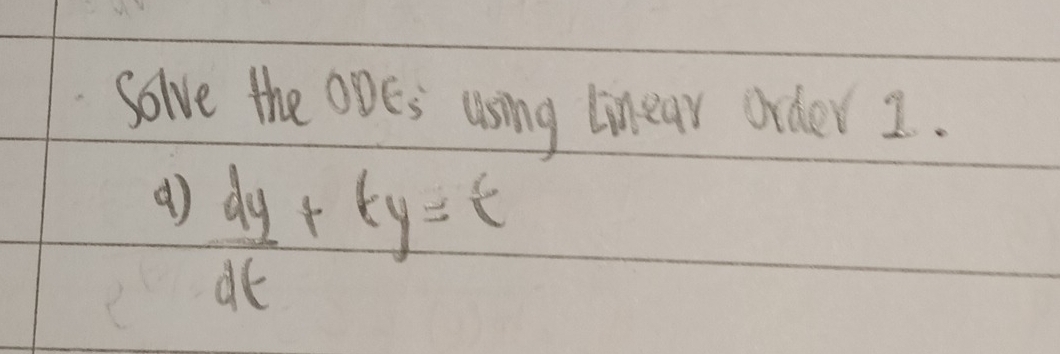 Solve the ODEs using Linear Order 1.
a) dy + ty = t
dt